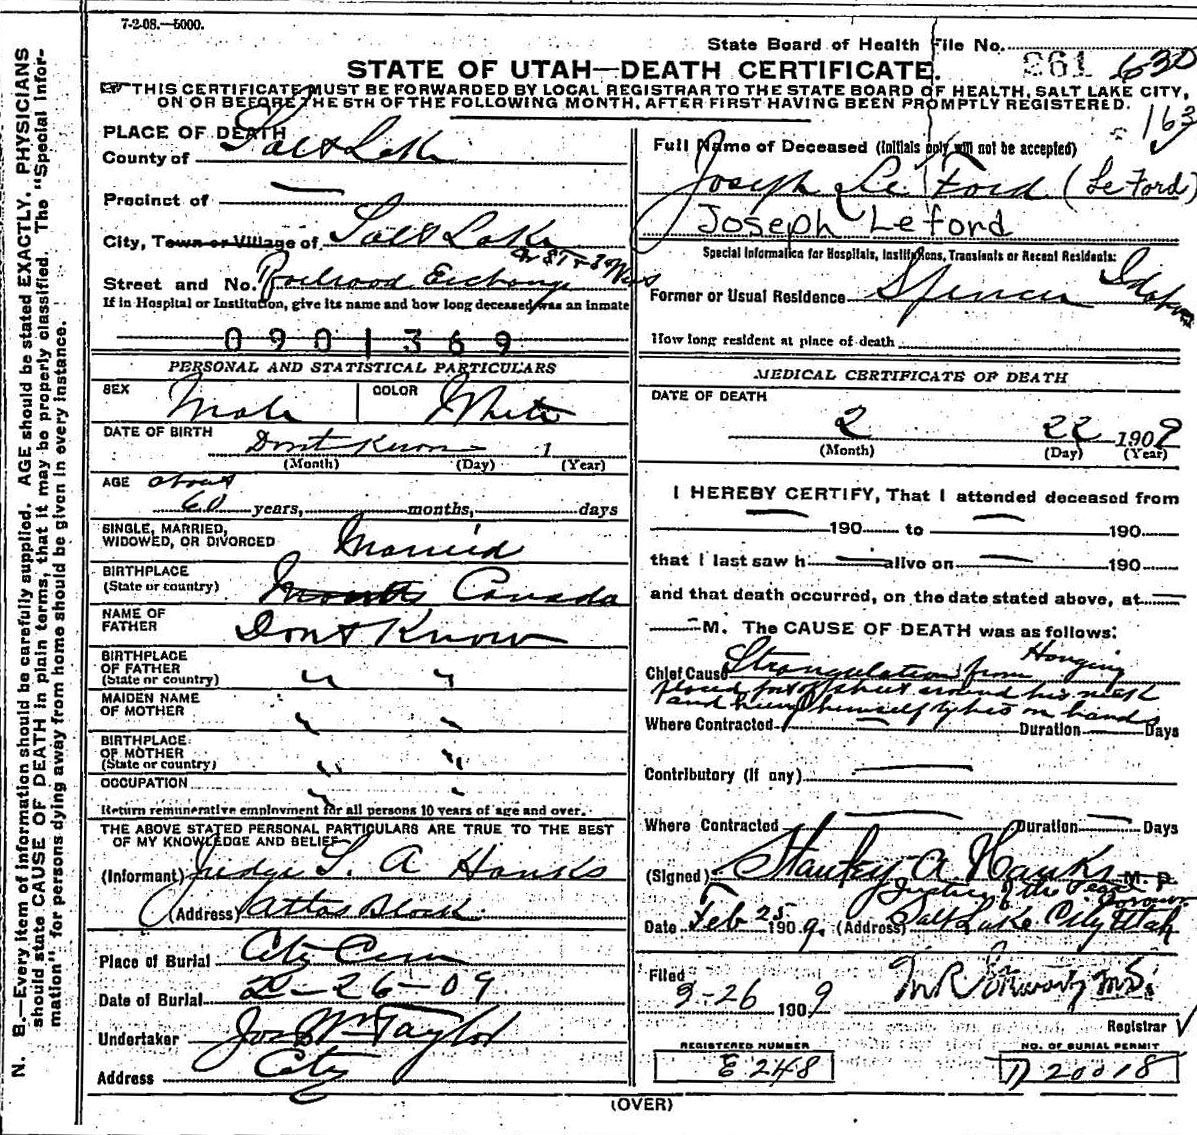 7-2-08.—5000.
State Board of Health File No. 261 630
163
STATE OF UTAH—DEATH CERTIFICATE.
THIS CERTIFICATE MUST BE FORWARDED BY LOCAL REGISTRAR TO THE STATE BOARD OF HEALTH, SALT LAKE CITY,
ON OR BEFORE THE 5TH OF THE FOLLOWING MONTH, AFTER FIRST HAVING BEEN PROMPTLY REGISTERED.
PLACE OF DEATH
County of Salt Lake
Precinct of
City, Town or Village of Salt Lake
Street and No. Railroad Exchange
If in Hospital or Institution, give its name and how long deceased was an inmate
0901369
PERSONAL AND STATISTICAL PARTICULARS
SEX Male COLOR White
DATE OF BIRTH Dont Know 1
(Month) (Day) (Year)
AGE about
60 years, months, days
SINGLE, MARRIED,
WIDOWED, OR DIVORCED Married
BIRTHPLACE
(State or country) Canada
NAME OF
FATHER Dont Know
BIRTHPLACE
OF FATHER
(State or country) " "
MAIDEN NAME
OF MOTHER " "
BIRTHPLACE
OF MOTHER
(State or country) " "
OCCUPATION " "
Return remunerative employment for all persons 10 years of age and over.
THE ABOVE STATED PERSONAL PARTICULARS ARE TRUE TO THE BEST
OF MY KNOWLEDGE AND BELIEF
(Informant) Judge S. A Hanks
(Address) Atlas Block
Place of Burial City Cem
Date of Burial 2-26-09
Undertaker Jos Wm Taylor
Address City
Full Name of Deceased (Initials only will not be accepted)
Joseph Le Ford (Le Ford)
Joseph Leford
Special Information for Hospitals, Institutions, Transients or Recent Residents:
Former or Usual Residence Spencer Idaho
How long resident at place of death
MEDICAL CERTIFICATE OF DEATH
DATE OF DEATH
2 22 1909
(Month) (Day) (Year)
I HEREBY CERTIFY, That I attended deceased from
190 to 190
that I last saw h alive on 190
and that death occurred, on the date stated above, at
M. The CAUSE OF DEATH was as follows:
Chief Cause Strangulation from Hanging
placed part of sheet around his neck
and hung himself
Where Contracted Duration Days
Contributory (if any)
Where Contracted Duration Days
(Signed) Stanley A. Hanks M. D.
Justice of the Peace
Date Feb 25 1909. (Address) Salt Lake City Utah
Filed
2-26 1909
Registrar
REGISTERED NUMBER
E 248
NO. OF BURIAL PERMIT
D 20018
(OVER)
N. B.—Every item of information should be carefully supplied. AGE should be stated EXACTLY. PHYSICIANS
should state CAUSE OF DEATH in plain terms, that it may be properly classified. The "Special Infor-
mation" for persons dying away from home should be given in every instance.